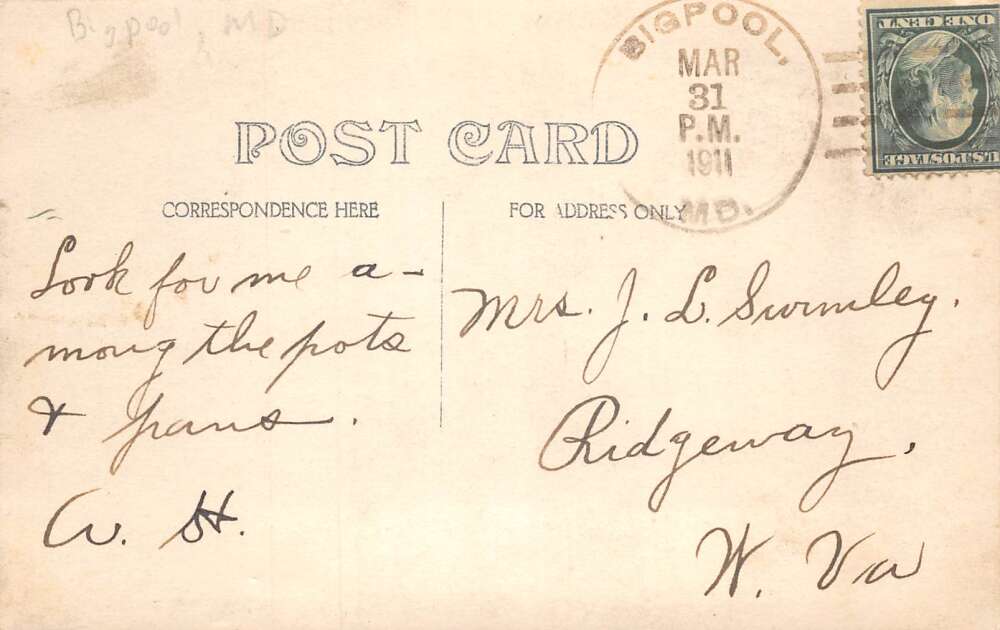 Bigpool, MD
BIGPOOL,
MAR
31
P.M.
1911
MD.
ONE CENT
U.S. POSTAGE
POST CARD
CORRESPONDENCE HERE
FOR ADDRESS ONLY
Look for me a-
mong the pots
& pans.
W. H.
Mrs. J. L. Swimley.
Ridgeway,
W. Va